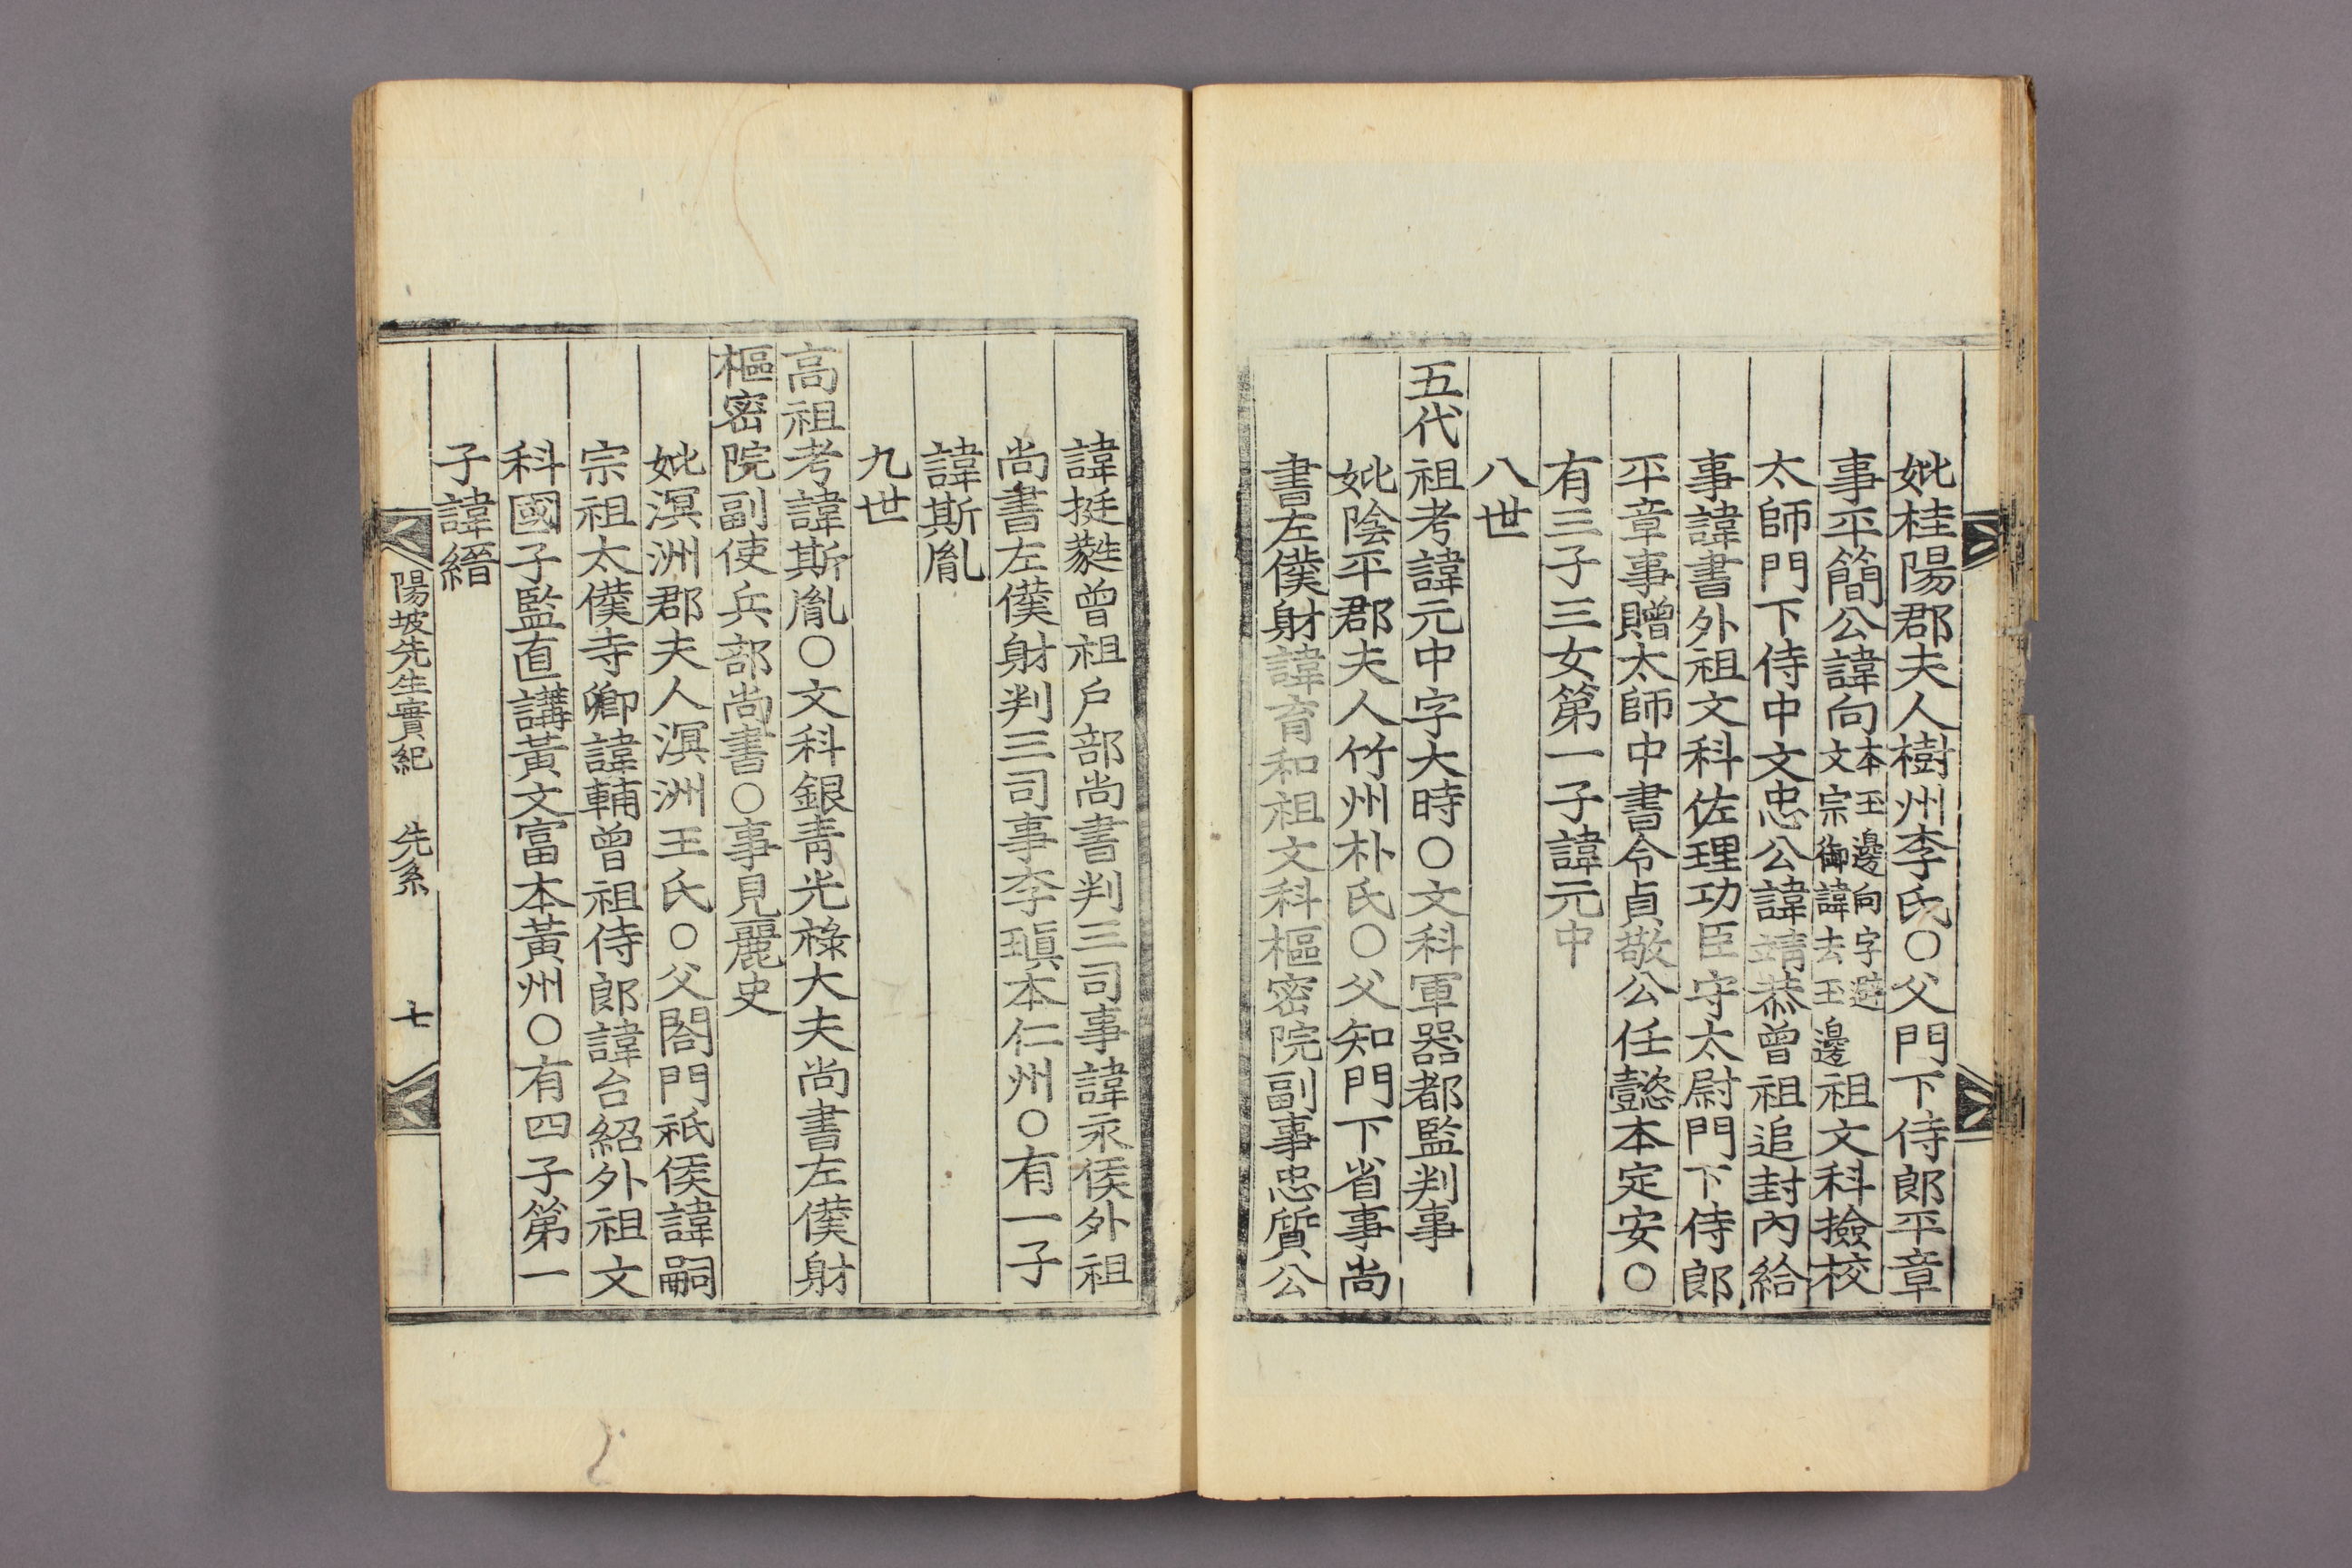 妣桂陽郡夫人樹州李氏○父門下侍郎平章
事平簡公諱向本玉邊向字避文宗御諱去玉邊祖文科撿校
太師門下侍中文忠公諱靖恭曾祖追封內給
事諱書外祖文科佐理功臣守太尉門下侍郎
平章事贈太師中書令貞敬公任懿本定安○
有三子三女第一子諱元中
八世
五代祖考諱元中字大時○文科軍器都監判事
妣陰平郡夫人竹州朴氏○父知門下省事尚
書左僕射諱育和祖文科樞密院副事忠質公
諱挺蕤曾祖戶部尚書判三司事諱永侯外祖
尚書左僕射判三司事李瑱本仁州○有一子
諱斯胤
九世
高祖考諱斯胤○文科銀靑光祿大夫尚書左僕射
樞密院副使兵部尚書○事見麗史
妣溟洲郡夫人溟洲王氏○父閤門祗侯諱嗣
宗祖太僕寺卿諱輔曾祖侍郎諱台紹外祖文
科國子監直講黃文富本黃州○有四子第一
子諱縉
陽坡先生實紀 先系 七